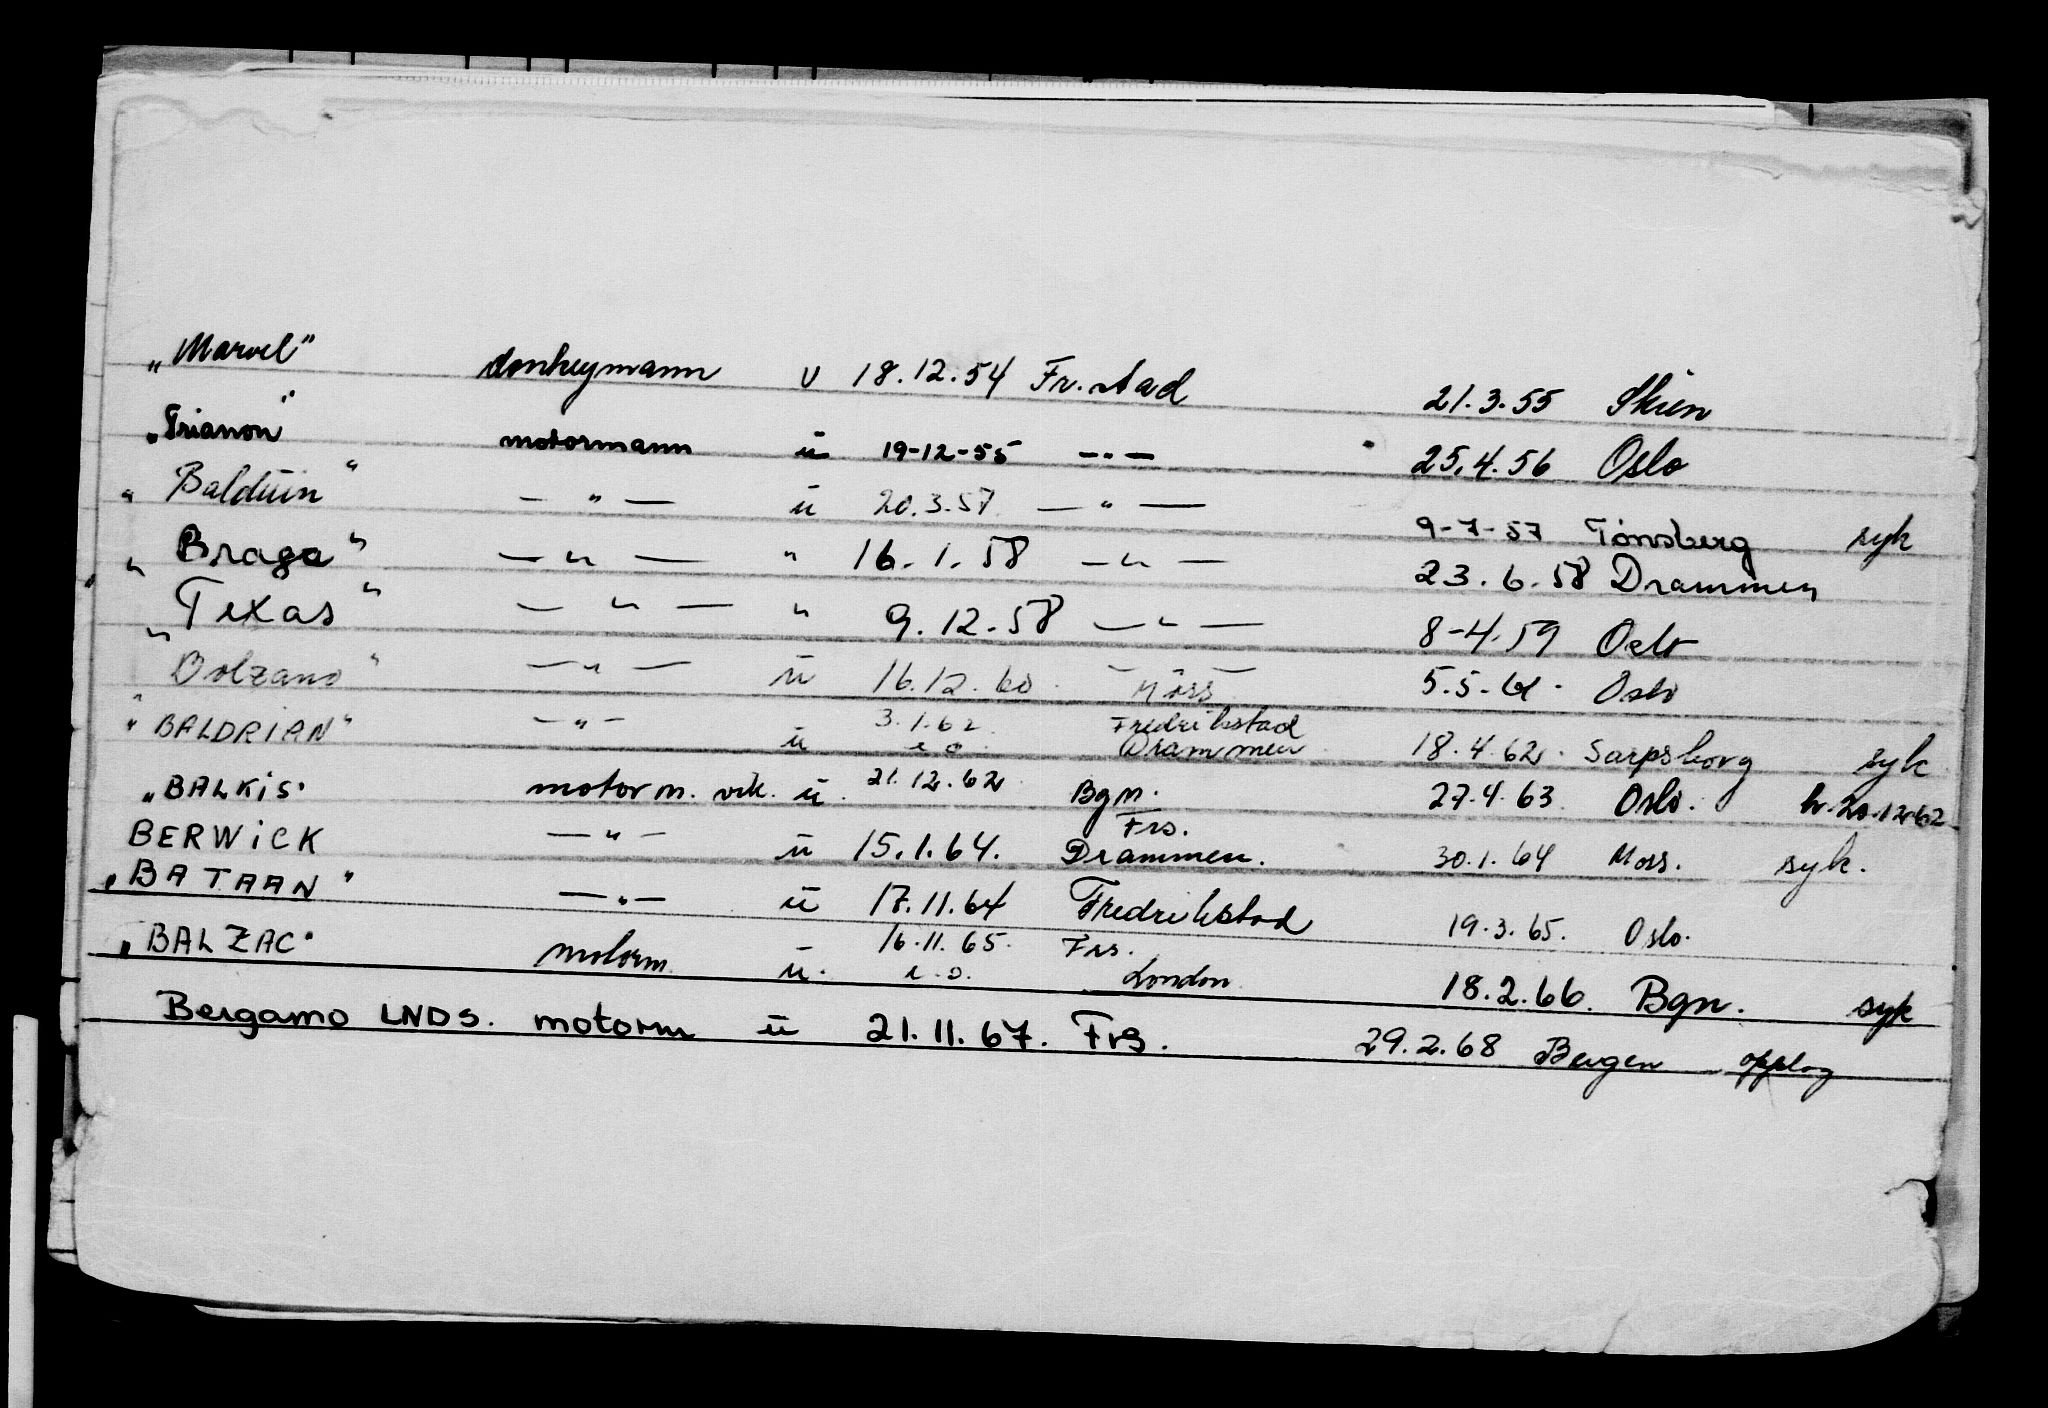 „Marvel" donkeymann v 18.12.54 Fr.stad 21.3.55 Skien
„Trianon" motormann ū 19-12-55 —"— 25.4.56 Oslo
„Balduin" — " — ū 20.3.57 — " — 9-7-57 Tønsberg syk
„Braga" — " — " 16.1.58 — " — 23.6.58 Drammen
„Texas" — " — " 9.12.58 — " — 8-4.59 Oslo
„Bolzano" — " — ū 16.12.60. Moss 5.5.61. Oslo
"BALDRIAN" — " — ū 3.1.62. Fredrikstad
e.o. Drammen 18.4.62. Sarpsborg syk
„BALKIS" motorm. vik. ū. 21.12.62 Bgn. 27.4.63 Oslo. h.20.12.62
BERWICK — " — ū 15.1.64. Frs. Drammen. 30.1.64 Moss. syk.
„BATAAN" — " — ū 17.11.64 Fredrikstad 19.3.65. Oslo.
„BALZAC" motorm. ū. 16.11.65. Frs.
e.o. London 18.2.66. Bgn. syk
Bergamo LNDS. motorm ū 21.11.67. Frs. 29.2.68 Bergen opplag